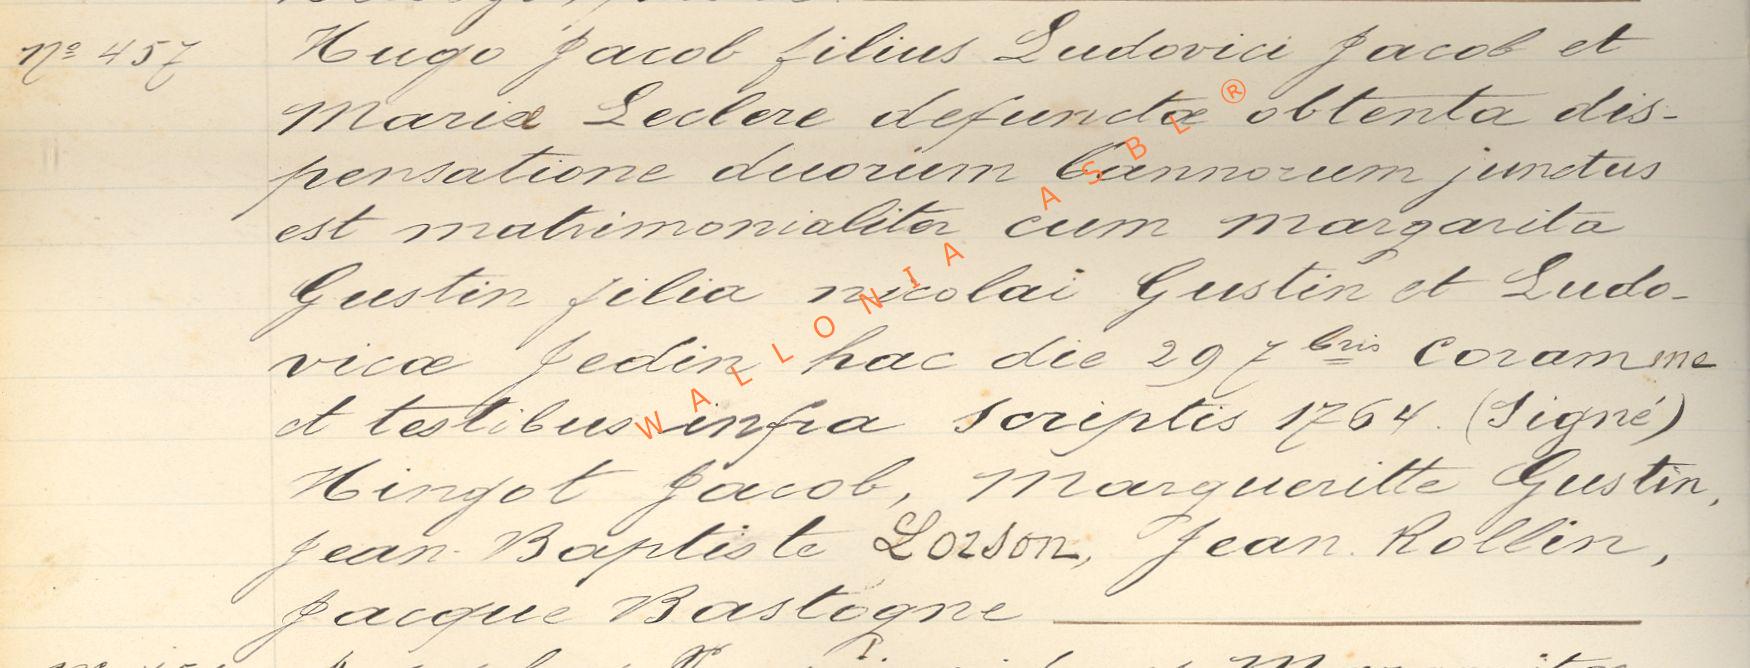 Nº 457 Hugo Jacob filius Ludovici Jacob et
Mariæ Leclere defunctæ obtenta dis-
pensatione duorum bannorum junctus
est matrimonialiter cum Margarita
Gustin filia nicolai Gustin et Ludo-
vicæ Jedin hac die 29 7bris coram me
et testibus infra scriptis 1764. (Signé)
Hingot Jacob, Margueritte Gustin,
Jean Baptiste Lorson, Jean Rollin,
Jacque Bastogne
WALLONIA ASBL ®